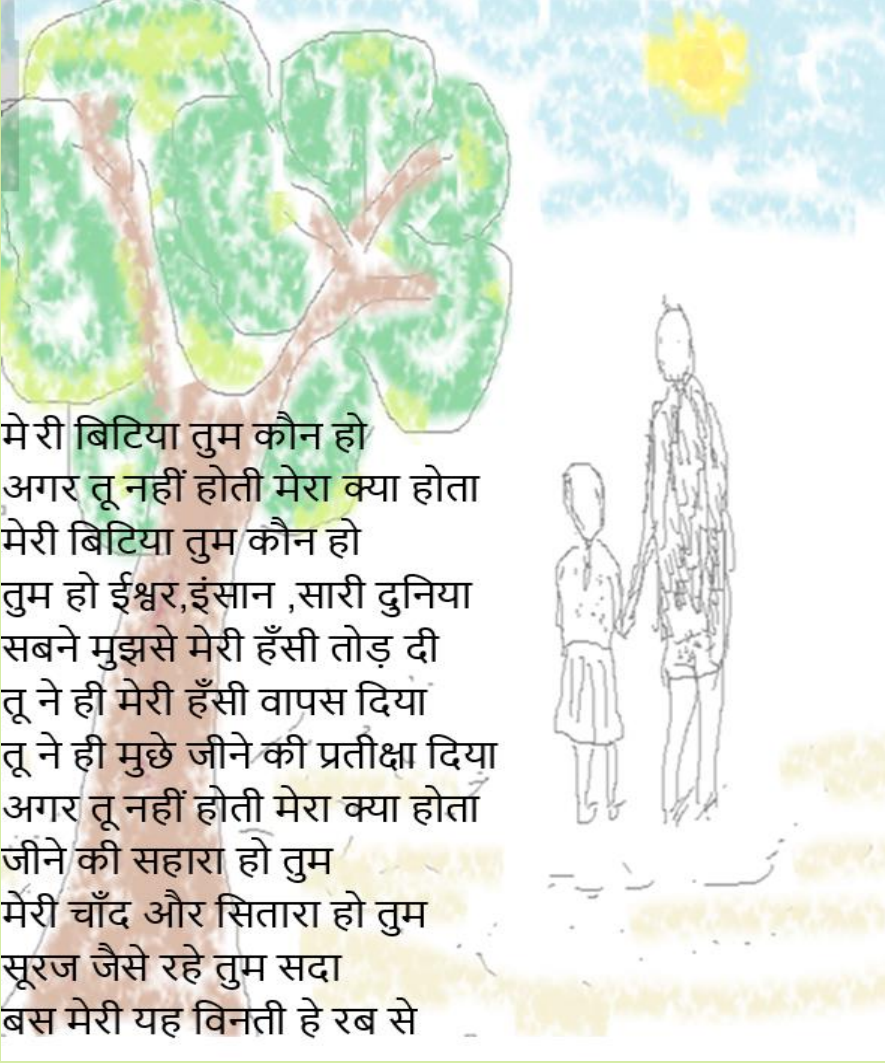 मेरी बिटिया तुम कौन हो
अगर तू नहीं होती मेरा क्या होता
मेरी बिटिया तुम कौन हो
तुम हो ईश्वर,इंसान ,सारी दुनिया
सबने मुझसे मेरी हँसी तोड़ दी
तू ने ही मेरी हँसी वापस दिया
तू ने ही मुछे जीने की प्रतीक्षा दिया
अगर तू नहीं होती मेरा क्या होता
जीने की सहारा हो तुम
मेरी चाँद और सितारा हो तुम
सूरज जैसे रहे तुम सदा
बस मेरी यह विनती हे रब से